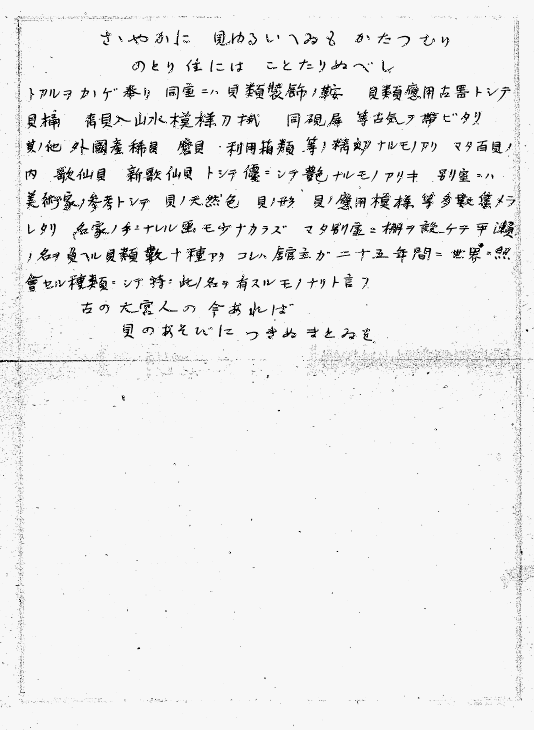 さゝやかに 見ゆるいへゐも かたつむり
のとり住には ことたりぬべし
トアルヲカゲ奉リ 同室ニハ貝類装飾ノ鞍 貝類應用古書トシテ
貝桶 青貝入山水模様刀掛 同硯屏 等古気ヲ帯ビタリ
其ノ他 外國産稀貝 磨貝 利用箱類 等ノ精妙ナルモノアリ マタ百貝ノ
内 歌仙貝 新歌仙貝 トシテ優ニシテ艶ナルモノアリキ 別室ニハ
美術家ノ参考トシテ 貝ノ天然色 貝ノ形 貝ノ應用模様 等多数集メラ
レタリ 名家ノ手ニナレル画モウナカラズ マタ別室ニ棚ヲ設ケテ平瀬
ノ名ヲ負ヘル貝類數十種アリ コレハ館主ガ二十五年間ニ世界ニ照
會セル種類ニシテ特ニ此ノ名ヲ有スルモノナリト言フ
古の大宮人の今あれば
貝のあそびにつきぬまとゐを